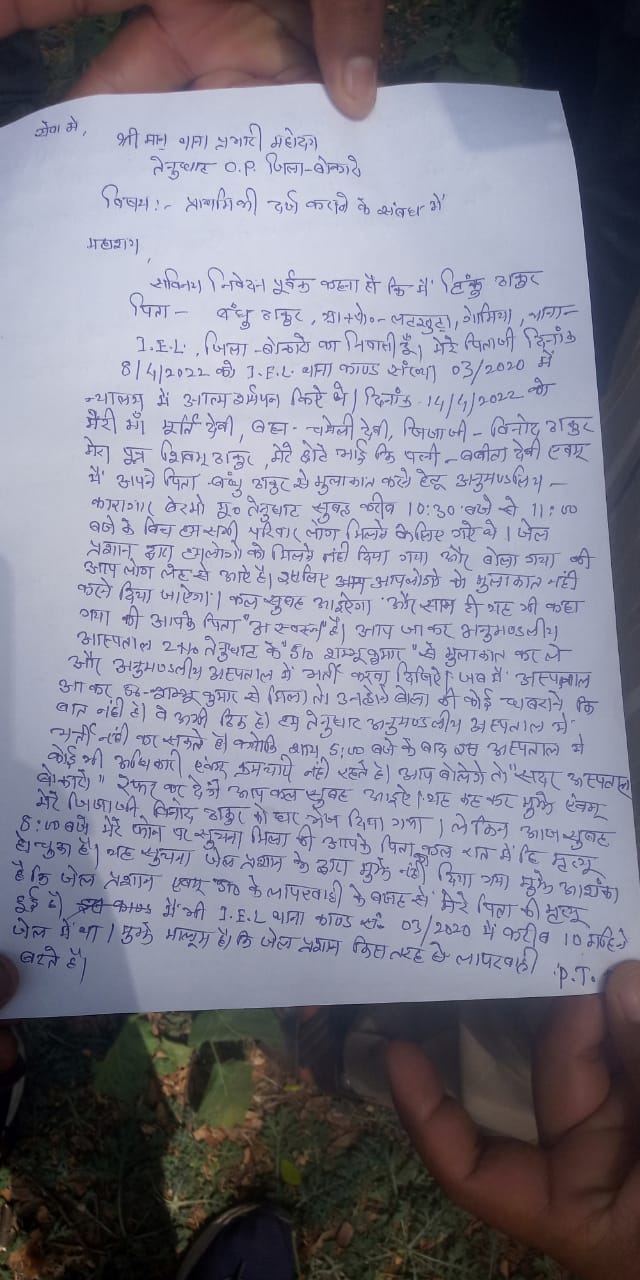 सेवा मे,
श्री मान् थाना प्रभारी महोदय
तेनुघाट O.P. जिला-बोकारो
विषय :- प्राथमिकी दर्ज कराने के संबंध में
महाशय,
सविनय निवेदन पूर्वक कहना है कि मैं टिंकु ठाकुर
पिता - बंधु ठाकुर, ग्रा+पो०- लटखुटा, गोमिया, थाना-
I.E.L, जिला-बोकारो का निवासी हूँ। मेरे पिताजी दिनांक
8/4/2022 को I.E.L. थाना काण्ड संख्या 03/2020 में
न्यालय में आत्म किए थे। दिनांक 14/4/2022 को
मेरी माँ मूर्ति देवी, बहन चमेली देवी, जिजाजी - विनोद ठाकुर
मेरा पुत्र शिवम् ठाकुर, मेरे छोटे भाई कि पत्नी - बबीता देवी एवम्
मैं अपने पिता बंधु ठाकुर से मुलाकात करने हेतू अनुमण्डलिय -
कारागार बेरमो तेनुघाट सुबह करीब 10:30 बजे से 11:00
बजे के बिच हम सभी परिवार लोग मिलने के लिए गए थे। जेल
द्वारा हमलोगो को मिलने नही दिया गया और बोला गया की
आप लोग लेट से आए है। इसलिए आप आपलोगो को मुलाकात नही
करने दिया जाऐगा। कल सुबह आईऐगा और साथ ही यह भी कहा
गया की आपके पिता "अस्वस्थ" है। आप जा कर अनुमण्डलीय
आस्पताल तेनुघाट के "डॉ० शम्भू कुमार" से मुलाकात कर ले
और अनुमण्डलीय अस्पताल में भर्ती करवा दिजिऐ। जब मैं अस्पताल
आ कर डॉ- शम्भू कुमार से मिला तो उन्होने बोला की कोई घबराने कि
बात नही है। वे अभी ठिक है। हम तेनुघाट अनुमण्डलीय अस्पताल में
भर्ती नही कर सकते है। क्योकि शाम 5:00 बजे के बाद इस अस्पताल मे
कोई भी अधिकारी एवम् कर्मचारी नही रहते है। आप बोलेगे तो "सदर अस्पताल
बोकारो" रेफर कर देगे आप कल सुबह आईऐ। यह कह कर मुझे एवम्
मेरे जिजाजी विनोद ठाकुर को घर भेज दिया गया। लेकिन आज सुबह
5:00 बजे मेरे फोन पर सुचना मिला की आपके पिता कल रात में हि मृत्यू
हो चुका है। यह सुचना जेल के द्वारा मुझे नही दिया गया मुझे आशंका
है कि जेल एवम् डॉ० के लापरवाही के वजह से मेरे पिता की मृत्यू
हुई है। में भी I.E.L थाना काण्ड सं० 03/2020 में करीब 10 महिने
जेल में था। मुझे मालूम है। कि जेल किस तरह से लापरवाही
बरते है।
P.T.